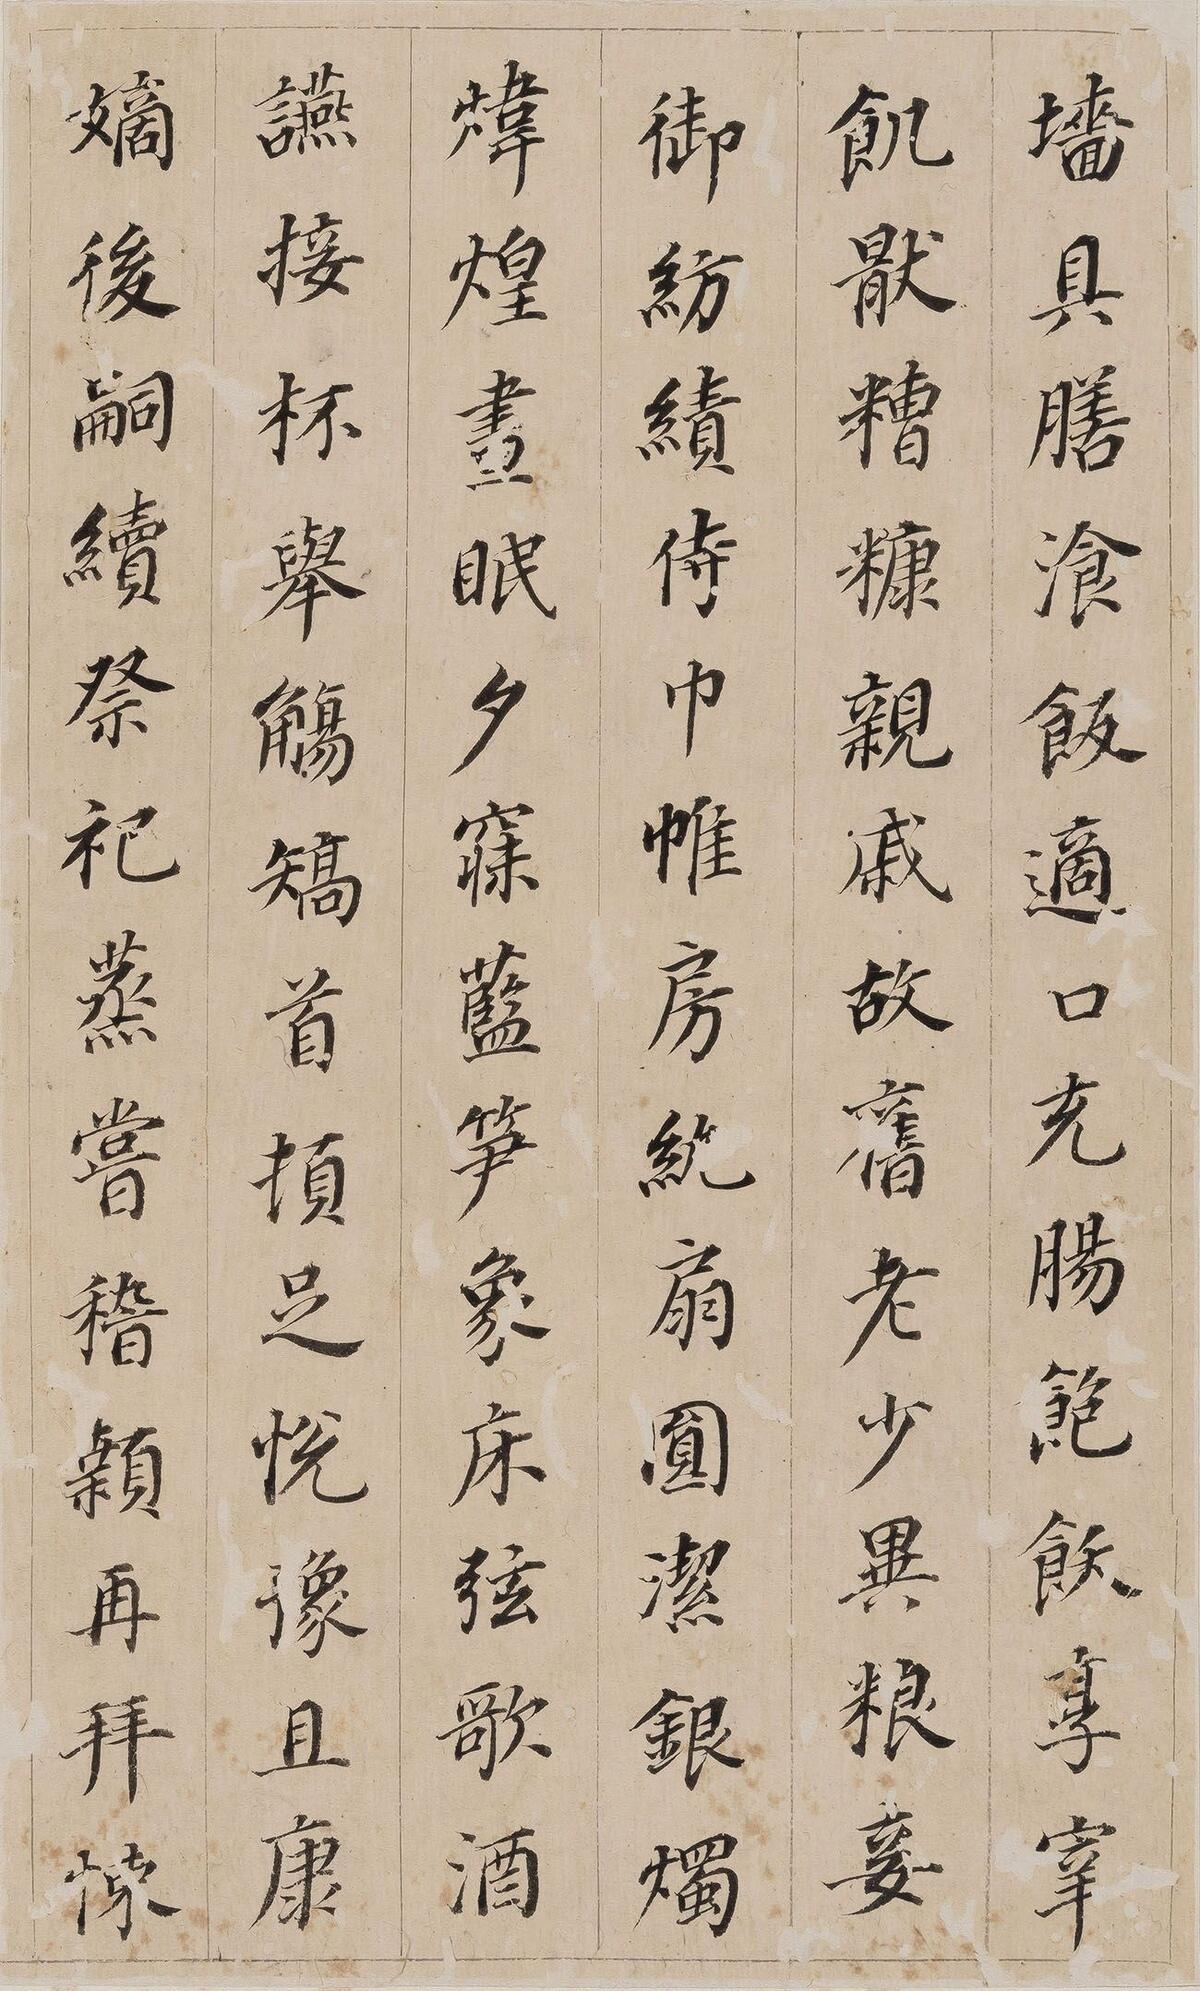 墻具膳湌飯適口充腸飽飫享宰
飢猒糟糠親戚故舊老少異粮妾
御紡績侍巾帷房紈扇圓潔銀燭
煒煌晝眠夕寐藍笋象床弦歌酒
讌接杯舉觴矯首頓足悅豫且康
嫡後嗣續祭祀蒸嘗稽顙再拜悚